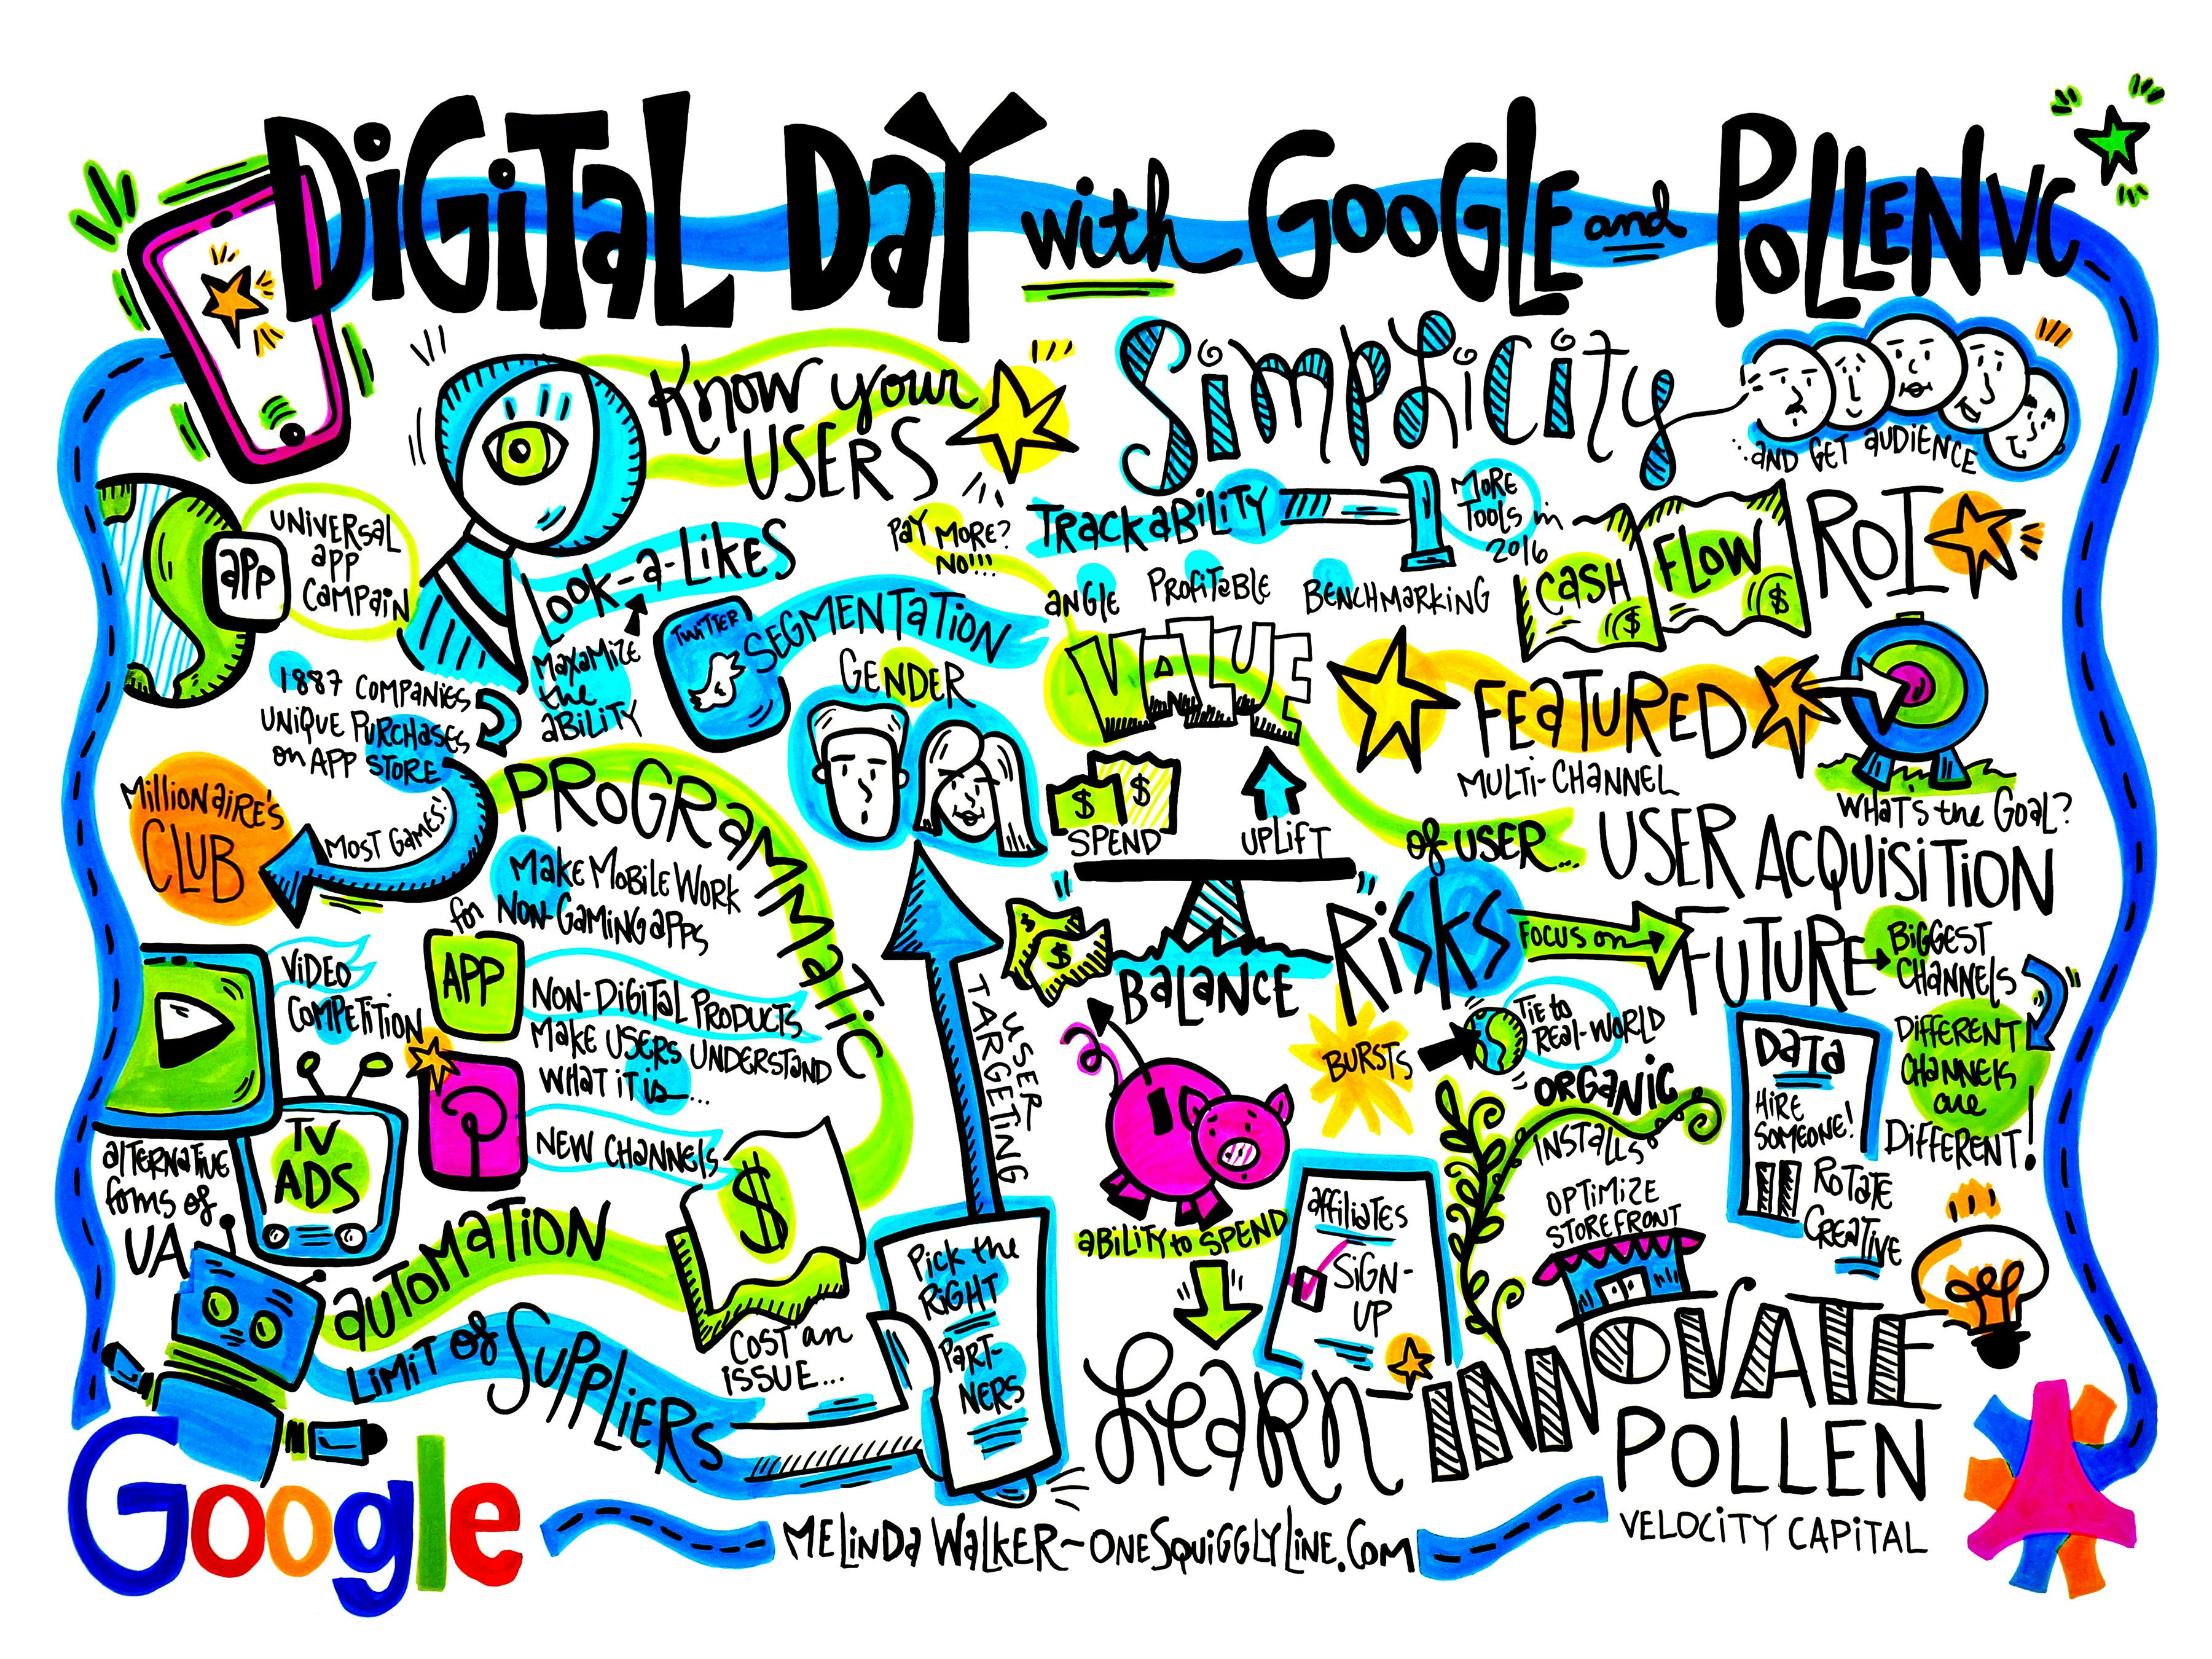 DiGiTaL DaY with GooGLE and PoLLENVC
Know your
USERS
SimpLiCity
...and GET aUDiENCE
UNiVERSaL
app
Campain
app
LOOK-a-LiKES
MaxaMiZE
the
aBiLiTY
TWiTTER
SEGMENTaTiON
PaY MORE?
NO!!!
TRackaBiLiTY
MORE
TOOLS in
2016
CaSH
FLOW
ROI
aNGLE
PROFiTaBLE
BENCHMaRKiNG
VaLUE
of USER...
GENDER
1887 COMPaNiES
UNiQUE PURCHaSES
on APP STORE
MiLLiONaiRE'S
CLUB
MOST GaMES!
PROGRaMMaTiC
MaKE MOBiLE WORK
for NON-GaMiNG apps
APP
NON-DiGiTaL PRODUCTS
MaKE USERS UNDERSTaND
WHaT iT is...
NEW CHaNNELS
ViDEO
COMPETiTiON
aLTERNaTiVE
foms of
UA
TV
ADS
aUTOMaTiON
LiMiT of SUPPLiERS
$
COST an
iSSUE...
USER
TaRGETiNG
Pick the
RiGHT
PaRT-
NERS
FEaTURED
MULTi-CHaNNEL
WHaT'S the GOaL?
USER ACQUiSiTiON
$ $
SPEND
UPLiFT
BaLaNCE
RiSKS
FOCUS on
FUTURE
BiGGEST
CHaNNELS
DiFFERENT
CHaNNELS
are
DiFFERENT!
BURSTS
TiE to
REaL-WORLD
ORGaNiC
iNSTaLLS
OPTiMiZE
STOREFRONT
DaTa
HiRE
SOMEONE!
ROTaTE
CREaTiVE
aBiLiTY to SPEND
affiLiaTES
SiGN-
UP
LEaRN-iNNOVaTE
POLLEN
VELOCiTY CAPiTaL
Google
MELiNDa WaLKER~ONESQUiGGLYLiNE.COM